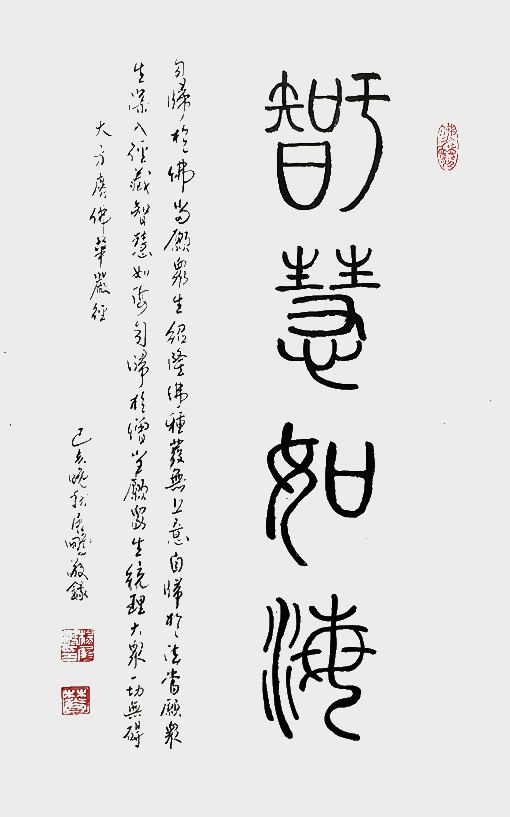 智慧如海
自歸於佛當願眾生紹隆佛種發無上意自歸於法當願眾
生深入經藏智慧如海自歸於僧當願眾生統理大眾一切無礙
大方廣佛華嚴經
己亥晚秋 敬錄